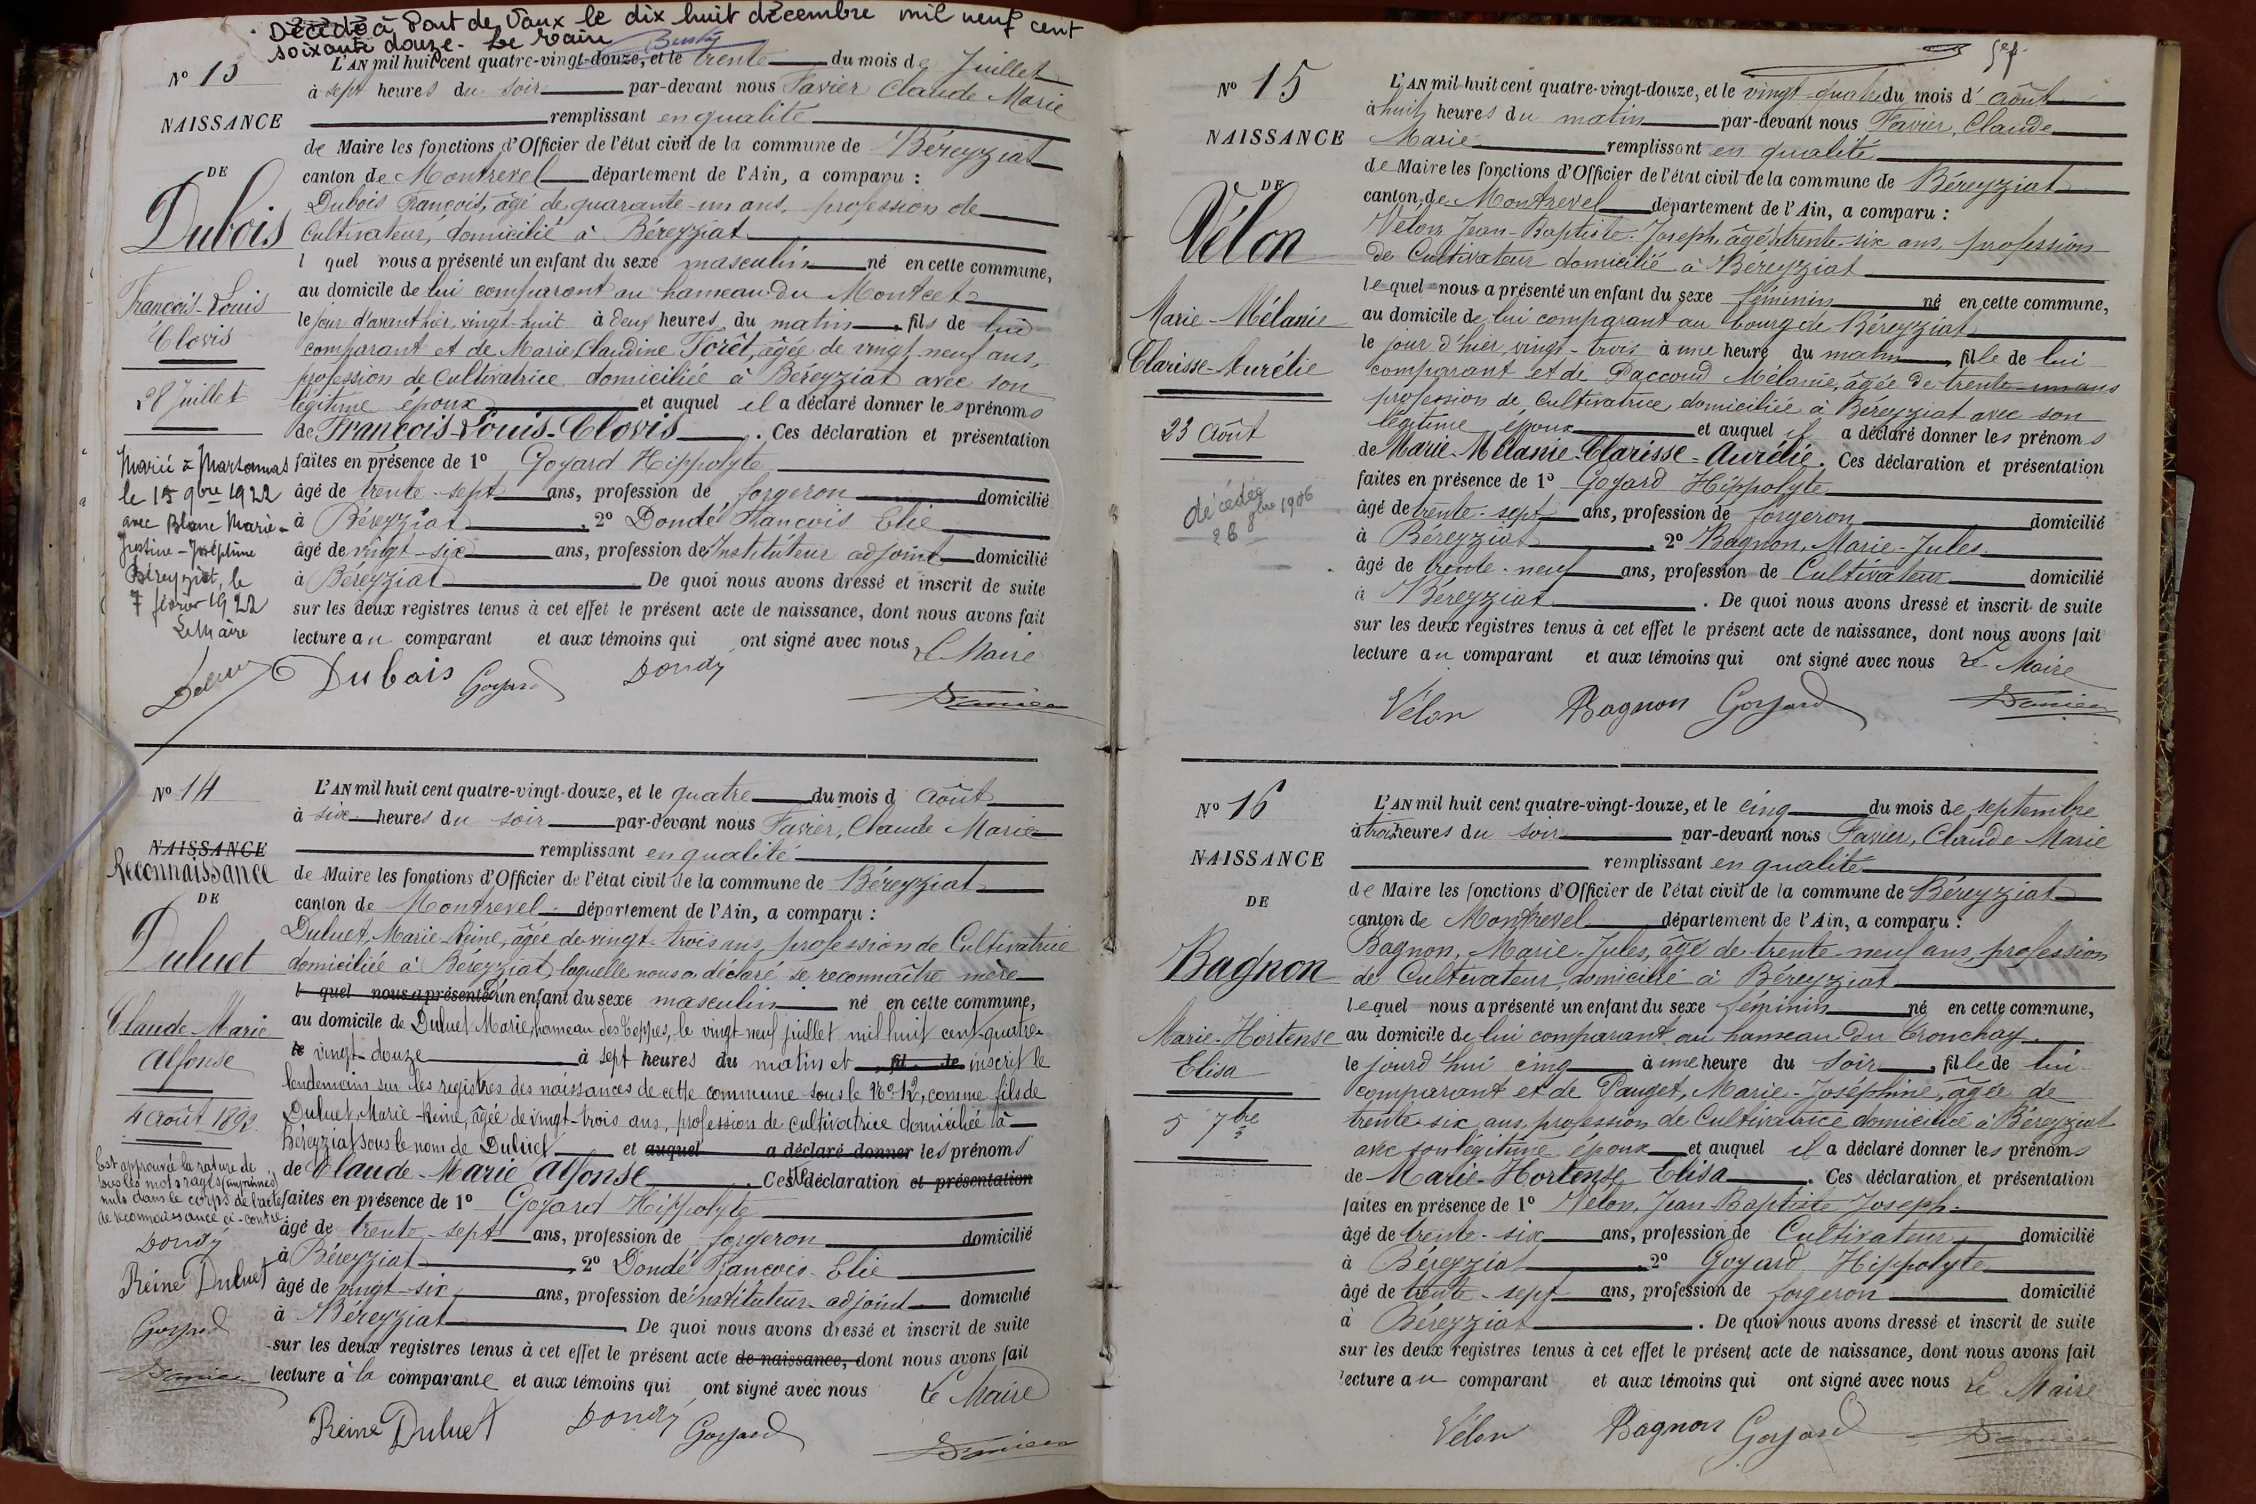 Décédé à Pont de Vaux le dix huit décembre mil neuf cent
soixante douze. Le Maire
N° 13
NAISSANCE
DE
Dubois
François-Louis
Clovis
28 Juillet
Marié à Marsonnas
le 15 9bre 1922
avec Blanc Marie-
Justine-Joséphine
Béreyziat, le
7 février 1922
Le Maire
L'AN mil huit cent quatre-vingt-douze, et le trente du mois de Juillet
à sept heures du soir par-devant nous Favier Claude Marie
remplissant en qualité
de Maire les fonctions d'Officier de l'état civil de la commune de Béreyziat
canton de Montrevel département de l'Ain, a comparu :
Dubois François, âgé de quarante-un ans, profession de
Cultivateur, domicilié à Béreyziat
l quel nous a présenté un enfant du sexe masculin né en cette commune,
au domicile de lui comparant au hameau du Montcet
le jour d'avant hier vingt-huit à deux heures du matin, fils de lui
comparant et de Marie Claudine Foret, âgée de vingt neuf ans,
profession de Cultivatrice domiciliée à Béreyziat avec son
légitime époux et auquel il a déclaré donner les prénoms
de François-Louis-Clovis. Ces déclaration et présentation
faites en présence de 1° Goyard Hippolyte
âgé de trente-sept ans, profession de forgeron domicilié
à Béreyziat, 2° Dondé François Elie
âgé de vingt-six ans, profession de Instituteur adjoint domicilié
à Béreyziat De quoi nous avons dressé et inscrit de suite
sur les deux registres tenus à cet effet le présent acte de naissance, dont nous avons fait
lecture au comparant et aux témoins qui ont signé avec nous Le Maire
Dubois Goyard Dondé
N° 14
NAISSANCE
Reconnaissance
DE
Duluet
Claude-Marie
Alfonse
4 Août 1892
Est approuvée la rature de
tous les mots rayés (imprimés)
nuls dans le corps de l'acte
de reconnaissance ci-contre
Dondé
Reine Duluet
Goyard
L'AN mil huit cent quatre-vingt-douze, et le quatre du mois d Août
à six heures du soir par-devant nous Favier, Claude Marie
remplissant en qualité
de Maire les fonctions d'Officier de l'état civil de la commune de Béreyziat
canton de Montrevel département de l'Ain, a comparu :
Duluet, Marie-Reine, âgée de vingt-trois ans, profession de Cultivatrice
domiciliée à Béreyziat, laquelle nous a déclaré se reconnaître mère
l quel nous a présenté d'un enfant du sexe masculin né en cette commune,
au domicile de Duluet Marie, hameau des Teppes, le vingt neuf juillet mil huit cent quatre-
le vingt-douze à sept heures du matin et fil de inscrit le
lendemain sur les registres des naissances de cette commune sous le N° 12, comme fils de
Duluet, Marie-Reine, âgée de vingt-trois ans, profession de cultivatrice domiciliée à
Béreyziat sous le nom de Duluet et auquel a déclaré donner les prénoms
de Claude-Marie Alfonse. Cette déclaration et présentation
faites en présence de 1° Goyard Hippolyte
âgé de trente-sept ans, profession de forgeron domicilié
à Béreyziat, 2° Dondé François-Elie
âgé de vingt-six ans, profession de Instituteur-adjoint domicilié
à Béreyziat De quoi nous avons dressé et inscrit de suite
sur les deux registres tenus à cet effet le présent acte de naissance, dont nous avons fait
lecture à la comparante et aux témoins qui ont signé avec nous Le Maire
Reine Duluet Dondé Goyard
N° 15
NAISSANCE
DE
Vélon
Marie-Mélanie
Clarisse-Aurélie
23 Août
décédée
26 8bre 1906
L'AN mil huit cent quatre-vingt-douze, et le vingt-quatre du mois d' Août
à huit heures du matin par-devant nous Favier, Claude
Marie remplissant en qualité
de Maire les fonctions d'Officier de l'état civil de la commune de Béreyziat
canton de Montrevel département de l'Ain, a comparu :
Vélon, Jean-Baptiste-Joseph, âgé de trente-six ans, profession
de Cultivateur domicilié à Béreyziat
lequel nous a présenté un enfant du sexe féminin né en cette commune,
au domicile de lui comparant au bourg de Béreyziat
le jour d'hier vingt-trois à une heure du matin, fille de lui
comparant et de Paccoud Mélanie, âgée de trente-un ans
profession de Cultivatrice, domiciliée à Béreyziat avec son
légitime époux et auquel il a déclaré donner les prénoms
de Marie-Mélanie-Clarisse-Aurélie. Ces déclaration et présentation
faites en présence de 1° Goyard Hippolyte
âgé de trente-sept ans, profession de forgeron domicilié
à Béreyziat, 2° Bagnon, Marie-Jules
âgé de trente-neuf ans, profession de Cultivateur domicilié
à Béreyziat. De quoi nous avons dressé et inscrit de suite
sur les deux registres tenus à cet effet le présent acte de naissance, dont nous avons fait
lecture au comparant et aux témoins qui ont signé avec nous Le Maire
Vélon Bagnon Goyard
N° 16
NAISSANCE
DE
Bagnon
Marie-Hortense
Elisa
5 7bre
L'AN mil huit cent quatre-vingt-douze, et le cinq du mois de septembre
à trois heures du soir par-devant nous Favier, Claude-Marie
remplissant en qualité
de Maire les fonctions d'Officier de l'état civil de la commune de Béreyziat
canton de Montrevel département de l'Ain, a comparu :
Bagnon, Marie-Jules, âgé de trente-neuf ans, profession
de Cultivateur, domicilié à Béreyziat
lequel nous a présenté un enfant du sexe féminin né en cette commune,
au domicile de lui comparant au hameau du Cronchay
le jourd'hui cinq à une heure du soir, fille de lui
comparant et de Pauget, Marie-Joséphine, âgée de
trente-six ans, profession de Cultivatrice domiciliée à Béreyziat
avec son légitime époux et auquel il a déclaré donner les prénoms
de Marie-Hortense Elisa. Ces déclaration et présentation
faites en présence de 1° Vélon, Jean Baptiste Joseph
âgé de trente-six ans, profession de Cultivateur domicilié
à Béreyziat 2° Goyard Hippolyte
âgé de trente-sept ans, profession de forgeron domicilié
à Béreyziat. De quoi nous avons dressé et inscrit de suite
sur les deux registres tenus à cet effet le présent acte de naissance, dont nous avons fait
lecture au comparant et aux témoins qui ont signé avec nous Le Maire
Vélon Bagnon Goyard